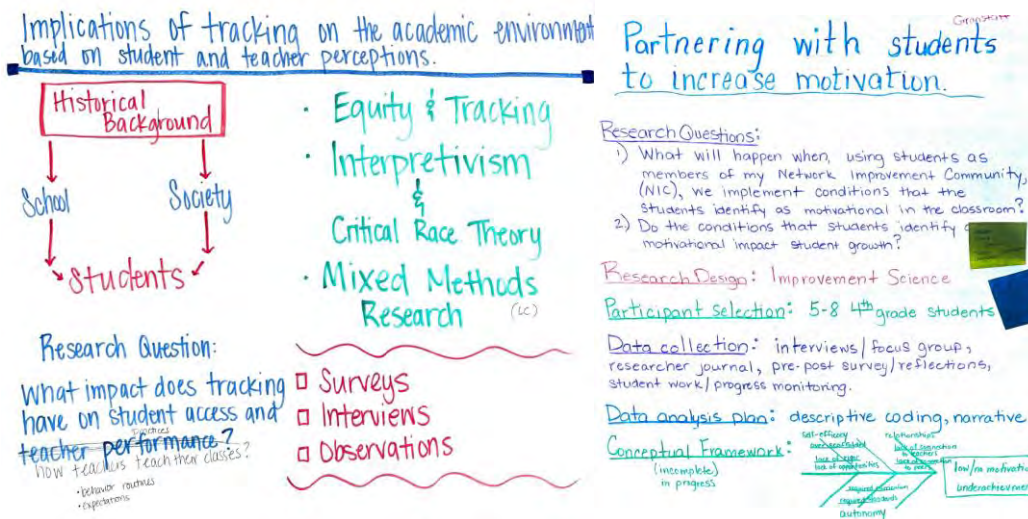 Implications of tracking on the academic environment
based on student and teacher perceptions.
Historical
Background
School
Society
Students
Research Question:
What impact does tracking
have on student access and
teacher performance?
practices
How teachers teach their classes?
• behavior routines
• expectations
• Equity & Tracking
• Interpretivism
&
Critical Race Theory
• Mixed Methods
Research (LC)
Surveys
Interviews
Observations
Partnering with students
to increase motivation.
Research Questions:
1) What will happen when, using students as
members of my Network Improvement Community,
(NIC), we implement conditions that the
students identify as motivational in the classroom?
2) Do the conditions that students identify
motivational impact student growth?
Research Design: Improvement Science
Participant selection: 5-8 4th grade students
Data collection: interviews/focus group,
researcher journal, pre-post survey/reflections,
student work/progress monitoring.
Data analysis plan: descriptive coding, narrative
Conceptual Framework:
(incomplete)
in progress
self-efficacy
relationships
lack of connection
to teachers
to peers
lack of opportunities
required curriculum
required standards
autonomy
low/no motivation
underachievement